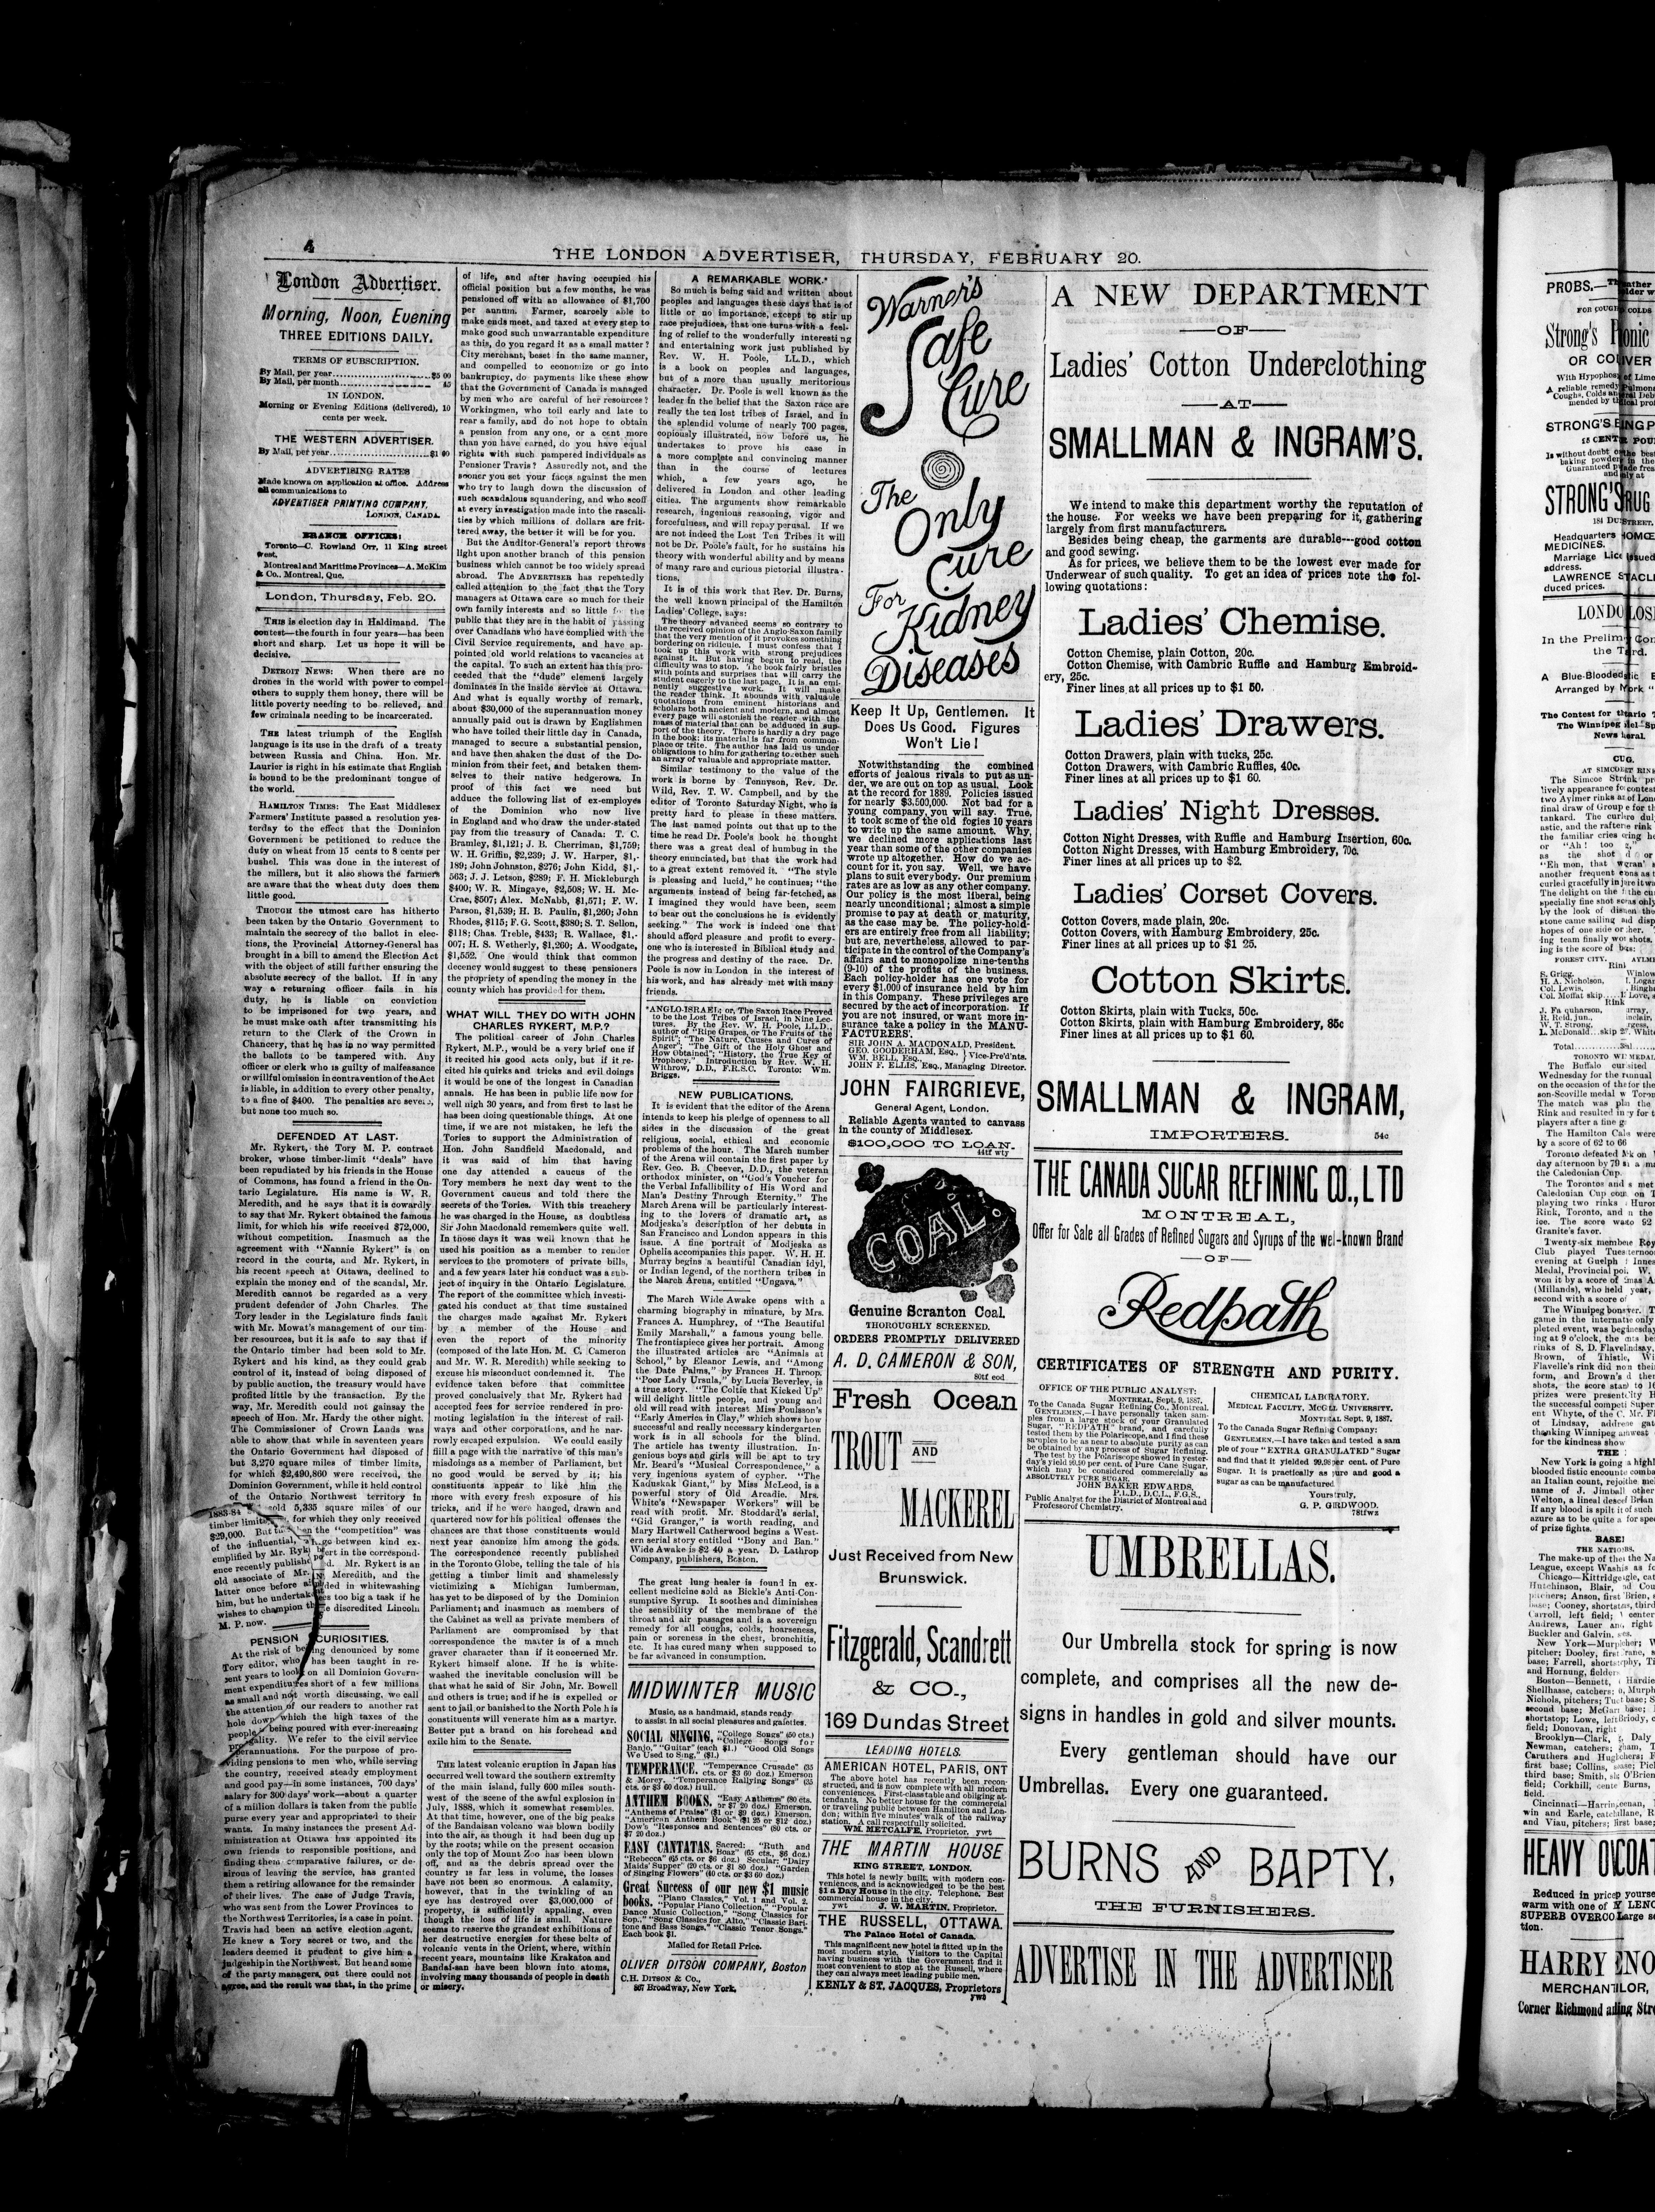 4
THE LONDON ADVERTISER, THURSDAY, FEBRUARY 20.
London Advertiser.
Morning, Noon, Evening
THREE EDITIONS DAILY.
TERMS OF SUBSCRIPTION.
By Mail, per year $5 00
By Mail, per month 45
IN LONDON.
Morning or Evening Editions (delivered), 10
cents per week.
THE WESTERN ADVERTISER.
By Mail, per year $1 00
ADVERTISING RATES
Made known on application at office. Address
all communications to
ADVERTISER PRINTING COMPANY,
LONDON, CANADA.
BRANCH OFFICES:
Toronto—C. Rowland Orr, 11 King street
west.
Montreal and Maritime Provinces—A. McKim
& Co., Montreal, Que.
London, Thursday, Feb. 20.
THIS is election day in Haldimand. The
contest—the fourth in four years—has been
short and sharp. Let us hope it will be
decisive.
DETROIT NEWS: When there are no
drones in the world with power to compel
others to supply them honey, there will be
little poverty needing to be relieved, and
few criminals needing to be incarcerated.
THE latest triumph of the English
language is its use in the draft of a treaty
between Russia and China. Hon. Mr.
Laurier is right in his estimate that English
is bound to be the predominant tongue of
the world.
HAMILTON TIMES: The East Middlesex
Farmers' Institute passed a resolution yes-
terday to the effect that the Dominion
Government be petitioned to reduce the
duty on wheat from 15 cents to 8 cents per
bushel. This was done in the interest of
the millers, but it also shows the farmers
are aware that the wheat duty does them
little good.
THOUGH the utmost care has hitherto
been taken by the Ontario Government to
maintain the secrecy of the ballot in elec-
tions, the Provincial Attorney-General has
brought in a bill to amend the Election Act
with the object of still further ensuring the
absolute secrecy of the ballot. If in any
way a returning officer fails in his
duty, he is liable on conviction
to be imprisoned for two years, and
he must make oath after transmitting his
return to the Clerk of the Crown in
Chancery, that he has in no way permitted
the ballots to be tampered with. Any
officer or clerk who is guilty of malfeasance
or willful omission in contravention of the Act
is liable, in addition to every other penalty,
to a fine of $400. The penalties are severe,
but none too much so.
DEFENDED AT LAST.
Mr. Rykert, the Tory M. P. contract
broker, whose timber-limit "deals" have
been repudiated by his friends in the House
of Commons, has found a friend in the On-
tario Legislature. His name is W. R.
Meredith, and he says that it is cowardly
to say that Mr. Rykert obtained the famous
limit, for which his wife received $72,000,
without competition. Inasmuch as the
agreement with "Nannie Rykert" is on
record in the courts, and Mr. Rykert, in
his recent speech at Ottawa, declined to
explain the money end of the scandal, Mr.
Meredith cannot be regarded as a very
prudent defender of John Charles. The
Tory leader in the Legislature finds fault
with Mr. Mowat's management of our tim-
ber resources, but it is safe to say that if
the Ontario timber had been sold to Mr.
Rykert and his kind, as they could grab
control of it, instead of being disposed of
by public auction, the treasury would have
profited little by the transaction. By the
way, Mr. Meredith could not gainsay the
speech of Hon. Mr. Hardy the other night.
The Commissioner of Crown Lands was
able to show that while in seventeen years
the Ontario Government had disposed of
but 3,270 square miles of timber limits,
for which $2,490,860 were received, the
Dominion Government, while it held control
of the Ontario Northwest territory in
1883-84 sold 5,335 square miles of our
timber limits, for which they only received
$29,000. But then the "competition" was
of the influential, go between kind ex-
emplified by Mr. Rykert in the correspond-
ence recently published. Mr. Rykert is an
old associate of Mr. Meredith, and the
latter once before aided in whitewashing
him, but he undertakes too big a task if he
wishes to champion the discredited Lincoln
M. P. now.
PENSION CURIOSITIES.
At the risk of being denounced by some
Tory editor, who has been taught in re-
cent years to look on all Dominion Govern-
ment expenditures short of a few millions
as small and not worth discussing, we call
the attention of our readers to another rat
hole down which the high taxes of the
people is being poured with ever-increasing
prodigality. We refer to the civil service
superannuations. For the purpose of pro-
viding pensions to men who, while serving
the country, received steady employment
and good pay—in some instances, 700 days'
salary for 300 days' work—about a quarter
of a million dollars is taken from the public
purse every year and appropriated to their
wants. In many instances the present Ad-
ministration at Ottawa has appointed its
own friends to responsible positions, and
finding them comparative failures, or de-
sirous of leaving the service, has granted
them a retiring allowance for the remainder
of their lives. The case of Judge Travis,
who was sent from the Lower Provinces to
the Northwest Territories, is a case in point.
Travis had been an active election agent.
He knew a Tory secret or two, and the
leaders deemed it prudent to give him a
judgeship in the Northwest. But he and some
of the party managers, out there could not
agree, and the result was that, in the prime
of life, and after having occupied his
official position but a few months, he was
pensioned off with an allowance of $1,700
per annum. Farmer, scarcely able to
make ends meet, and taxed at every step to
make good such unwarrantable expenditure
as this, do you regard it as a small matter?
City merchant, beset in the same manner,
and compelled to economize or go into
bankruptcy, do payments like these show
that the Government of Canada is managed
by men who are careful of her resources?
Workingmen, who toil early and late to
rear a family, and do not hope to obtain
a pension from any one, or a cent more
than you have earned, do you have equal
rights with such pampered individuals as
Pensioner Travis? Assuredly not, and the
sooner you set your faces against the men
who try to laugh down the discussion of
such scandalous squandering, and who scoff
at every investigation made into the rascali-
ties by which millions of dollars are frit-
tered away, the better it will be for you.
But the Auditor-General's report throws
light upon another branch of this pension
business which cannot be too widely spread
abroad. The ADVERTISER has repeatedly
called attention to the fact that the Tory
managers at Ottawa care so much for their
own family interests and so little for the
public that they are in the habit of passing
over Canadians who have complied with the
Civil Service requirements, and have ap-
pointed old world relations to vacancies at
the capital. To such an extent has this pro-
ceeded that the "dude" element largely
dominates in the inside service at Ottawa.
And what is equally worthy of remark,
about $30,000 of the superannuation money
annually paid out is drawn by Englishmen
who have toiled their little day in Canada,
managed to secure a substantial pension,
and have then shaken the dust of the Do-
minion from their feet, and betaken them-
selves to their native hedgerows. In
proof of this fact we need but
adduce the following list of ex-employes
of the Dominion who now live
in England and who draw the under-stated
pay from the treasury of Canada: T. C.
Bramley, $1,121; J. B. Cherriman, $1,759;
W. H. Griffin, $2,239; J. W. Harper, $1,-
189; John Johnston, $276; John Kidd, $1,-
563; J. J. Letson, $289; F. H. Mickleburgh
$400; W. R. Mingaye, $2,508; W. H. Mc-
Crae, $507; Alex. McNabb, $1,571; F. W.
Parson, $1,539; H. B. Paulin, $1,260; John
Rhodes, $115; F. G. Scott, $380; S. T. Sellon,
$118; Chas. Treble, $433; R. Wallace, $1,-
007; H. S. Wetherly, $1,260; A. Woodgate,
$1,552. One would think that common
decency would suggest to these pensioners
the propriety of spending the money in the
county which has provided for them.
WHAT WILL THEY DO WITH JOHN
CHARLES RYKERT, M.P.?
The political career of John Charles
Rykert, M.P., would be a very brief one if
it recited his good acts only, but if it re-
cited his quirks and tricks and evil doings
it would be one of the longest in Canadian
annals. He has been in public life now for
well nigh 30 years, and from first to last he
has been doing questionable things. At one
time, if we are not mistaken, he left the
Tories to support the Administration of
Hon. John Sandfield Macdonald, and
it was said of him that having
one day attended a caucus of the
Tory members he next day went to the
Government caucus and told there the
secrets of the Tories. With this treachery
he was charged in the House, as doubtless
Sir John Macdonald remembers quite well.
In those days it was well known that he
used his position as a member to render
services to the promoters of private bills,
and a few years later his conduct was a sub-
ject of inquiry in the Ontario Legislature.
The report of the committee which investi-
gated his conduct at that time sustained
the charges made against Mr. Rykert
by a member of the House and
even the report of the minority
(composed of the late Hon. M. C. Cameron
and Mr. W. R. Meredith) while seeking to
excuse his misconduct condemned it. The
evidence taken before that committee
proved conclusively that Mr. Rykert had
accepted fees for service rendered in pro-
moting legislation in the interest of rail-
ways and other corporations, and he nar-
rowly escaped expulsion. We could easily
fill a page with the narrative of this man's
misdoings as a member of Parliament, but
no good would be served by it; his
constituents appear to like him the
more with every fresh exposure of his
tricks, and if he were hanged, drawn and
quartered now for his political offenses the
chances are that those constituents would
next year canonize him among the gods.
The correspondence recently published
in the Toronto Globe, telling the tale of his
getting a timber limit and shamelessly
victimizing a Michigan lumberman,
has yet to be disposed of by the Dominion
Parliament; and inasmuch as members of
the Cabinet as well as private members of
Parliament are compromised by that
correspondence the matter is of a much
graver character than if it concerned Mr.
Rykert himself alone. If he is white-
washed the inevitable conclusion will be
that what he said of Sir John, Mr. Bowell
and others is true; and if he is expelled or
sent to jail or banished to the North Pole his
constituents will venerate him as a martyr.
Better put a brand on his forehead and
exile him to the Senate.
THE latest volcanic eruption in Japan has
occurred well toward the southern extremity
of the main island, fully 600 miles south-
west of the scene of the awful explosion in
July, 1888, which it somewhat resembles.
At that time, however, one of the big peaks
of the Bandaisan volcano was blown bodily
into the air, as though it had been dug up
by the roots; while on the present occasion
only the top of Mount Zoo has been blown
off, and as the debris spread over the
country is far less in volume, the losses
have not been so enormous. A calamity,
however, that in the twinkling of an
eye has destroyed over $3,000,000 of
property, is sufficiently appaling, even
though the loss of life is small. Nature
seems to reserve the grandest exhibitions of
her destructive energies for these belts of
volcanic vents in the Orient, where, within
recent years, mountains like Krakatoa and
Bandai-san have been blown into atoms,
involving many thousands of people in death
or misery.
A REMARKABLE WORK.*
So much is being said and written about
peoples and languages these days that is of
little or no importance, except to stir up
race prejudices, that one turns with a feel-
ing of relief to the wonderfully interesting
and entertaining work just published by
Rev. W. H. Poole, LL.D., which
is a book on peoples and languages,
but of a more than usually meritorious
character. Dr. Poole is well known as the
leader in the belief that the Saxon race are
really the ten lost tribes of Israel, and in
the splendid volume of nearly 700 pages,
copiously illustrated, now before us, he
undertakes to prove his case in
a more complete and convincing manner
than in the course of lectures
which, a few years ago, he
delivered in London and other leading
cities. The arguments show remarkable
research, ingenious reasoning, vigor and
forcefulness, and will repay perusal. If we
are not indeed the Lost Ten Tribes it will
not be Dr. Poole's fault, for he sustains his
theory with wonderful ability and by means
of many rare and curious pictorial illustra-
tions.
It is of this work that Rev. Dr. Burns,
the well known principal of the Hamilton
Ladies' College, says:
The theory advanced seems so contrary to
the received opinion of the Anglo-Saxon family
that the very mention of it provokes something
bordering on ridicule. I must confess that I
took up this work with strong prejudices
against it. But having begun to read, the
difficulty was to stop. The book fairly bristles
with points and surprises that will carry the
student eagerly to the last page. It is an emi-
nently suggestive work. It will make
the reader think. It abounds with valuable
quotations from eminent historians and
scholars both ancient and modern, and almost
every page will astonish the reader with the
mass of material that can be adduced in sup-
port of the theory. There is hardly a dry page
in the book; its material is far from common-
place or trite. The author has laid us under
obligations to him for gathering together such
an array of valuable and appropriate matter.
Similar testimony to the value of the
work is borne by Tennyson, Rev. Dr.
Wild, Rev. T. W. Campbell, and by the
editor of Toronto Saturday Night, who is
pretty hard to please in these matters.
The last named points out that up to the
time he read Dr. Poole's book he thought
there was a great deal of humbug in the
theory enunciated, but that the work had
to a great extent removed it. "The style
is pleasing and lucid," he continues; "the
arguments instead of being far-fetched, as
I imagined they would have been, seem
to bear out the conclusions he is evidently
seeking." The work is indeed one that
should afford pleasure and profit to every-
one who is interested in Biblical study and
the progress and destiny of the race. Dr.
Poole is now in London in the interest of
his work, and has already met with many
friends.
*ANGLO-ISRAEL; or, The Saxon Race Proved
to be the Lost Tribes of Israel, in Nine Lec-
tures. By the Rev. W. H. Poole, LL.D.,
author of "Ripe Grapes, or The Fruits of the
Spirit"; "The Nature, Causes and Cures of
Anger"; "The Gift of the Holy Ghost and
How Obtained"; "History, the True Key of
Prophecy." Introduction by Rev. W. H.
Withrow, D.D., F.R.S.C. Toronto: Wm.
Briggs.
NEW PUBLICATIONS.
It is evident that the editor of the Arena
intends to keep his pledge of openness to all
sides in the discussion of the great
religious, social, ethical and economic
problems of the hour. The March number
of the Arena will contain the first paper by
Rev. Geo. B. Cheever, D.D., the veteran
orthodox minister, on "God's Voucher for
the Verbal Infallibility of His Word and
Man's Destiny Through Eternity." The
March Arena will be particularly interest-
ing to the lovers of dramatic art, as
Modjeska's description of her debuts in
San Francisco and London appears in this
issue. A fine portrait of Modjeska as
Ophelia accompanies this paper. W. H. H.
Murray begins a beautiful Canadian idyl,
or Indian legend, of the northern tribes in
the March Arena, entitled "Ungava."
The March Wide Awake opens with a
charming biography in minature, by Mrs.
Frances A. Humphrey, of "The Beautiful
Emily Marshall," a famous young belle.
The frontispiece gives her portrait. Among
the illustrated articles are "Animals at
School," by Eleanor Lewis, and "Among
the Date Palms," by Frances H. Throop.
"Poor Lady Ursula," by Lucia Beverley, is
a true story. "The Coltie that Kicked Up"
will delight little people, and young and
old will read with interest Miss Poulsson's
"Early America in Clay," which shows how
successful and really necessary kindergarten
work is in all schools for the blind.
The article has twenty illustration. In-
genious boys and girls will be apt to try
Mr. Beard's "Musical Correspondence," a
very ingenious system of cypher. "The
Kaduskak Giant," by Miss McLeod, is a
powerful story of Old Arcadie. Mrs.
White's "Newspaper Workers" will be
read with profit. Mr. Stoddard's serial,
"Gid Granger," is worth reading, and
Mary Hartwell Catherwood begins a West-
ern serial story entitled "Bony and Ban."
Wide Awake is $2 40 a year. D. Lathrop
Company, publishers, Boston.
The great lung healer is found in ex-
cellent medicine sold as Bickle's Anti-Con-
sumptive Syrup. It soothes and diminishes
the sensibility of the membrane of the
throat and air passages and is a sovereign
remedy for all coughs, colds, hoarseness,
pain or soreness in the chest, bronchitis,
etc. It has cured many when supposed to
be far advanced in consumption.
MIDWINTER MUSIC
Music, as a handmaid, stands ready
to assist in all social pleasures and gaieties.
SOCIAL SINGING, "College Songs" (50 cts.)
"College Songs for
Banjo," "Guitar" (each $1.) "Good Old Songs
We Used to Sing," ($1.)
TEMPERANCE. "Temperance Crusade" (35
cts. or $3 60 doz.) Emerson
& Morey. "Temperance Rallying Songs" (35
cts. or $3 60 doz.) Hull.
ANTHEM BOOKS. "Easy Anthems" (80 cts.
or $7 20 doz.) Emerson.
"Anthems of Praise" ($1 or $9 doz.) Emerson.
"American Anthem Book" ($1 25 or $12 doz.)
Dow's "Responses and Sentences" (80 cts. or
$7 20 doz.)
EASY CANTATAS. Sacred: "Ruth and
Boaz" (65 cts., $6 doz.)
"Rebecca" (65 cts. or $6 doz.) Secular: "Dairy
Maids' Supper" (20 cts. or $1 80 doz.) "Garden
of Singing Flowers" (40 cts. or $3 60 doz.)
Great Success of our new $1 music
books. "Piano Classics," Vol. 1 and Vol. 2,
"Popular Piano Collection," "Popular
Dance Music Collection," "Song Classics for
Sop.," "Song Classics for Alto," "Classic Bari-
tone and Bass Songs," "Classic Tenor Songs."
Each book $1.
Mailed for Retail Price.
OLIVER DITSON COMPANY, Boston
C.H. DITSON & CO.,
867 Broadway, New York.
Warner's
Safe
Cure
The
Only
Cure
For
Kidney
Diseases
Keep It Up, Gentlemen. It
Does Us Good. Figures
Won't Lie!
Notwithstanding the combined
efforts of jealous rivals to put us un-
der, we are out on top as usual. Look
at the record for 1889. Policies issued
for nearly $3,500,000. Not bad for a
young company, you will say. True,
it took some of the old fogies 10 years
to write up the same amount. Why,
we declined more applications last
year than some of the companies
wrote up altogether. How do we ac-
count for it, you say. Well, we have
plans to suit everybody. Our premium
rates are as low as any other company.
Our policy is the most liberal, being
nearly unconditional; almost a simple
promise to pay at death or maturity,
as the case may be. The policy-hold-
ers are entirely free from all liability;
but are, nevertheless, allowed to par-
ticipate in the control of the Company's
affairs and to monopolize nine-tenths
(9-10) of the profits of the business.
Each policy-holder has one vote for
every $1,000 of insurance held by him
in this Company. These privileges are
secured by the act of incorporation. If
you are not insured, or want more in-
surance take a policy in the MANU-
FACTURERS'.
SIR JOHN A. MACDONALD, President.
GEO. GOODERHAM, Esq.,
WM. BELL, Esq., } Vice-Pre'd'nts.
JOHN F. ELLIS, Esq., Managing Director.
JOHN FAIRGRIEVE,
General Agent, London.
Reliable Agents wanted to canvass
in the county of Middlesex.
$100,000 TO LOAN.
44tf wty
COAL.
Genuine Scranton Coal.
THOROUGHLY SCREENED.
ORDERS PROMPTLY DELIVERED
A. D. CAMERON & SON,
80tf eod
Fresh Ocean
TROUT AND
MACKEREL
Just Received from New
Brunswick.
Fitzgerald, Scandrett
& CO.,
169 Dundas Street
LEADING HOTELS.
AMERICAN HOTEL, PARIS, ONT
The above hotel has recently been recon-
structed, and is now complete with all modern
conveniences. First-class table and obliging at-
tendants. No better house for the commercial
or traveling public between Hamilton and Lon-
don; within five minutes' walk of the railway
station. A call respectfully solicited.
WM. METCALFE, Proprietor. ywt
THE MARTIN HOUSE
KING STREET, LONDON.
This hotel is newly built, with modern con-
veniences, and is acknowledged to be the best
$1 a Day House in the city. Telephone. Best
commercial house in the city.
ywt J. W. MARTIN, Proprietor.
THE RUSSELL, OTTAWA.
The Palace Hotel of Canada.
This magnificent new hotel is fitted up in the
most modern style. Visitors to the Capital
having business with the Government find it
most convenient to stop at the Russell, where
they can always meet leading public men.
KENLY & ST. JACQUES, Proprietors
ywt
A NEW DEPARTMENT
—OF—
Ladies' Cotton Underclothing
—AT—
SMALLMAN & INGRAM'S.
We intend to make this department worthy the reputation of
the house. For weeks we have been preparing for it, gathering
largely from first manufacturers.
Besides being cheap, the garments are durable---good cotton
and good sewing.
As for prices, we believe them to be the lowest ever made for
Underwear of such quality. To get an idea of prices note the fol-
lowing quotations:
Ladies' Chemise.
Cotton Chemise, plain Cotton, 20c.
Cotton Chemise, with Cambric Ruffle and Hamburg Embroid-
ery, 25c.
Finer lines at all prices up to $1 50.
Ladies' Drawers.
Cotton Drawers, plain with tucks, 25c.
Cotton Drawers, with Cambric Ruffles, 40c.
Finer lines at all prices up to $1 60.
Ladies' Night Dresses.
Cotton Night Dresses, with Ruffle and Hamburg Insertion, 60c.
Cotton Night Dresses, with Hamburg Embroidery, 70c.
Finer lines at all prices up to $2.
Ladies' Corset Covers.
Cotton Covers, made plain, 20c.
Cotton Covers, with Hamburg Embroidery, 25c.
Finer lines at all prices up to $1 25.
Cotton Skirts.
Cotton Skirts, plain with Tucks, 50c.
Cotton Skirts, plain with Hamburg Embroidery, 85c
Finer lines at all prices up to $1 60.
SMALLMAN & INGRAM,
IMPORTERS. 54c
THE CANADA SUGAR REFINING CO., LTD
MONTREAL,
Offer for Sale all Grades of Refined Sugars and Syrups of the wel-known Brand
—OF—
Redpath
CERTIFICATES OF STRENGTH AND PURITY.
OFFICE OF THE PUBLIC ANALYST:
MONTREAL, Sept. 9, 1887.
To the Canada Sugar Refining Co., Montreal.
GENTLEMEN,—I have personally taken sam-
ples from a large stock of your Granulated
Sugar, "REDPATH" brand, and carefully
tested them by the Polariscope, and I find these
samples to be as near to absolute purity as can
be obtained by any process of Sugar Refining.
The test by the Polariscope showed in yester-
day's yield 99.90 per cent. of Pure Cane Sugar,
which may be considered commercially as
ABSOLUTELY PURE SUGAR.
JOHN BAKER EDWARDS,
P.L.D., D.C.L., F.G.S.,
Public Analyst for the District of Montreal and
Professor of Chemistry.
CHEMICAL LABORATORY.
MEDICAL FACULTY, MCGILL UNIVERSITY.
MONTREAL Sept. 9, 1887.
To the Canada Sugar Refining Company:
GENTLEMEN,—I have taken and tested a sam
ple of your "EXTRA GRANULATED" Sugar
and find that it yielded 99.98 per cent. of Pure
Sugar. It is practically as pure and good a
sugar as can be manufactured
Yours truly,
G. P. GIRDWOOD.
78tfwz
UMBRELLAS.
Our Umbrella stock for spring is now
complete, and comprises all the new de-
signs in handles in gold and silver mounts.
Every gentleman should have our
Umbrellas. Every one guaranteed.
BURNS AND BAPTY,
THE FURNISHERS.
ADVERTISE IN THE ADVERTISER
PROBS.
Strong's
STRONG'S
LAWRENCE
HEAVY
HARRY
Corner Richmond